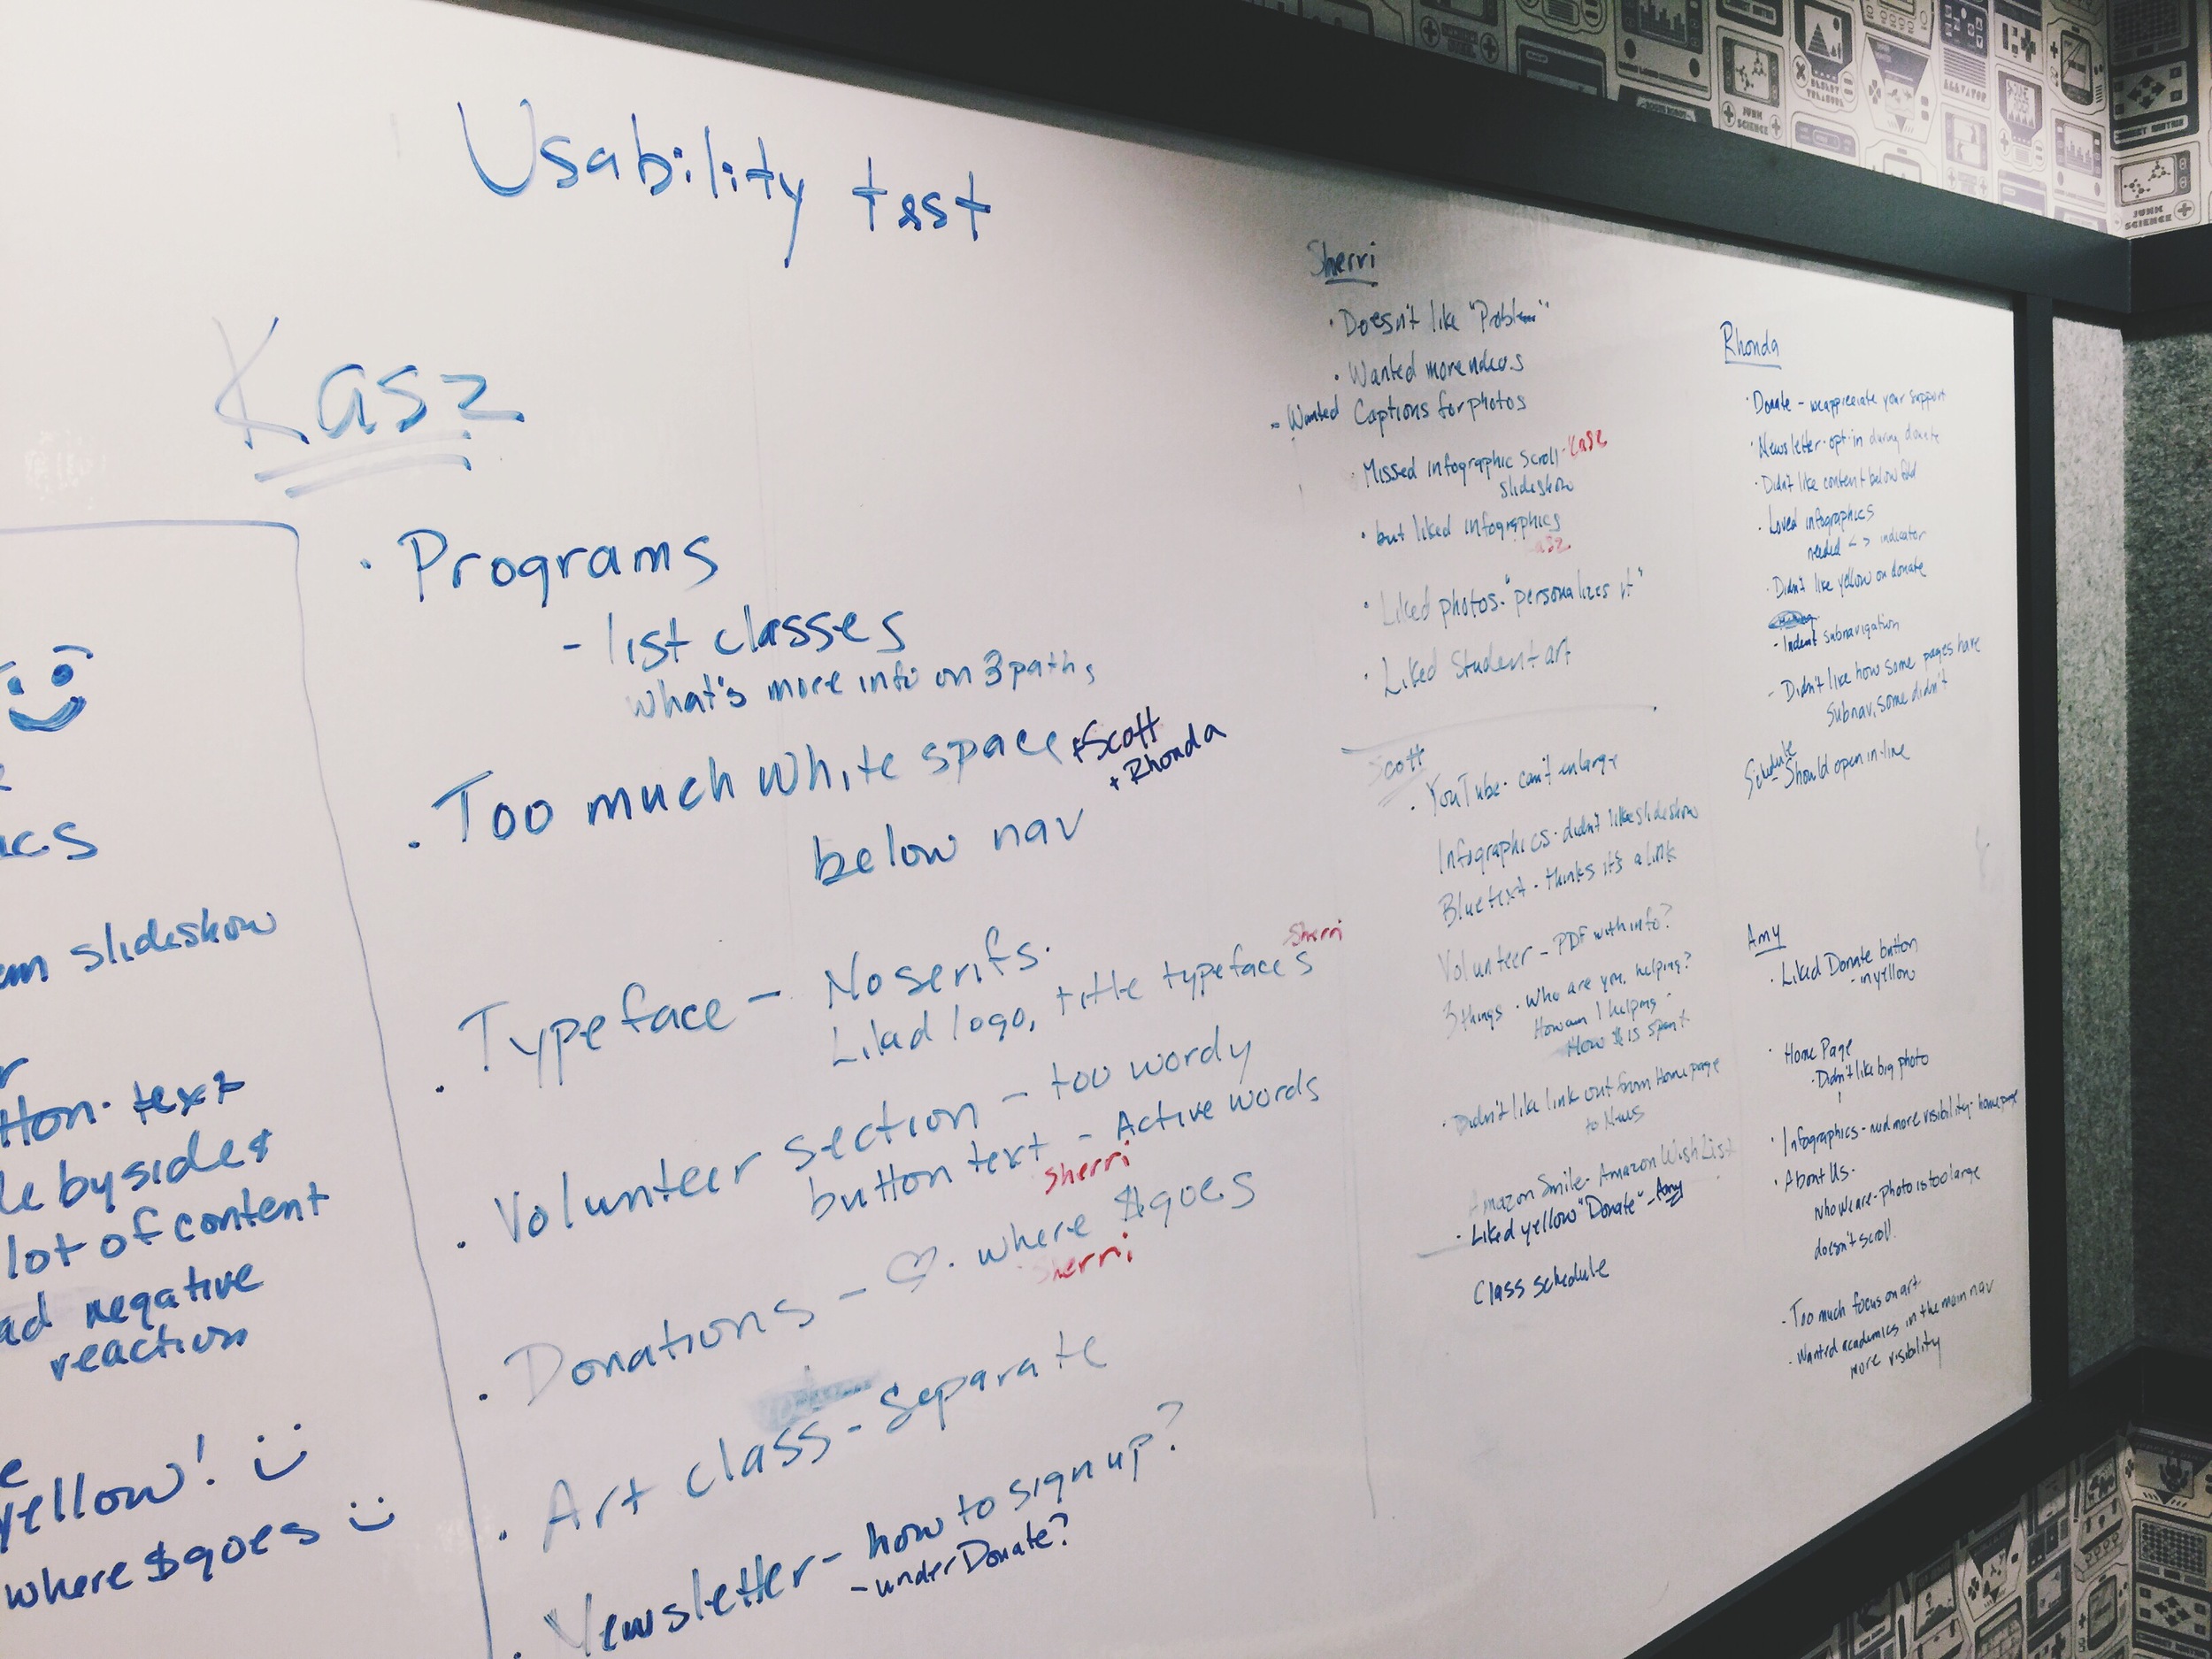 Usability test
slideshow
text
by sides
lot of content
negative
reaction
yellow! :)
where $ goes :)
Kasz
• Programs
- list classes
what's more info on 3 paths
• Too much white space +Scott
+ Rhonda
below nav
• Typeface - No serifs.
Liked logo, title typefaces Sherri
• Volunteer section - too wordy
button text - Active words
Sherri
• Donations - ♡. where $ goes
Sherri
• Art class - Separate
• Newsletter - how to sign up?
- under Donate?
Sherri
• Doesn't like "Problem"
• Wanted more videos
- Wanted Captions for photos
• Missed infographic scroll - Kasz
slideshow
• but liked infographics
Kasz
• Liked photos - "personalizes it"
• Liked Student art
Scott
• YouTube - can't enlarge
Infographics - didn't like slideshow
Blue text - thinks it's a link
Volunteer - PDF with info?
3 things • Who are you helping?
How am I helping -
How $ is spent
• Didn't like link out from Homepage
to News
Amazon Smile - Amazon Wish List
• Liked yellow "Donate" - Amy
Class schedule
Rhonda
• Donate - we appreciate your support
• Newsletter - opt-in during donate
• Didn't like content below fold
• Loved infographics
needed < > indicator
• Didn't like yellow on donate
- Indent subnavigation
- Didn't like how some pages have
Subnav, some didn't
Schedule
- Should open in-line
Amy
• Liked Donate button
- in yellow
• Home Page
• Didn't like big photo
• Infographics - need more visibility - homepage
• About Us -
who we are - photo is too large
doesn't scroll.
- Too much focus on art
- Wanted academics in the main nav
more visibility